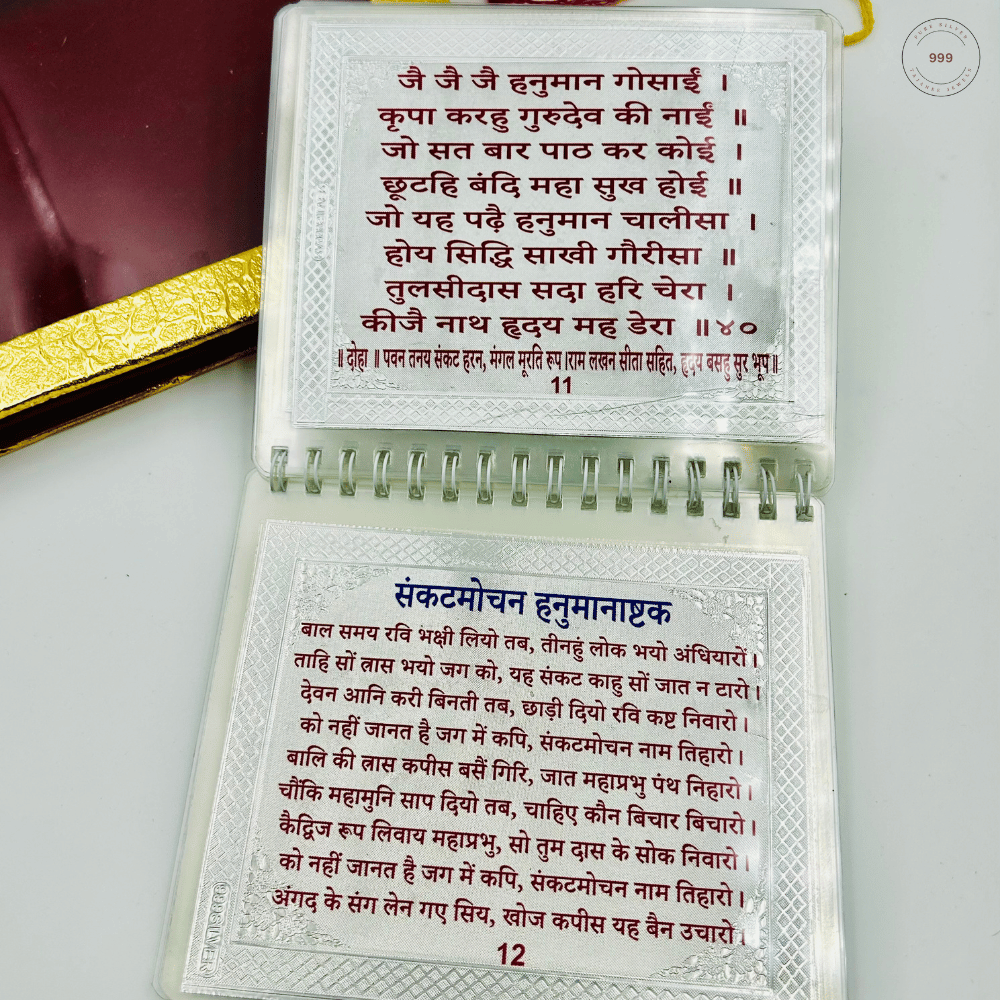 PURE SILVER
999
जै जै जै हनुमान गोसाईं ।
कृपा करहु गुरुदेव की नाईं ॥
जो सत बार पाठ कर कोई ।
छूटहि बंदि महा सुख होई ॥
जो यह पढ़ै हनुमान चालीसा ।
होय सिद्धि साखी गौरीसा ॥
तुलसीदास सदा हरि चेरा ।
कीजै नाथ हृदय मह डेरा ॥४०
॥ दोहा ॥ पवन तनय संकट हरन, मंगल मूरति रूप ।राम लखन सीता सहित, हृदय बसहु सुर भूप॥
11
संकटमोचन हनुमानाष्टक
बाल समय रवि भक्षी लियो तब, तीनहुं लोक भयो अंधियारों।
ताहि सों त्रास भयो जग को, यह संकट काहु सों जात न टारो।
देवन आनि करी बिनती तब, छाड़ी दियो रवि कष्ट निवारो।
को नहीं जानत है जग में कपि, संकटमोचन नाम तिहारो।
बालि की त्रास कपीस बसैं गिरि, जात महाप्रभु पंथ निहारो।
चौंकि महामुनि साप दियो तब, चाहिए कौन बिचार बिचारो।
कैद्विज रूप लिवाय महाप्रभु, सो तुम दास के सोक निवारो।
को नहीं जानत है जग में कपि, संकटमोचन नाम तिहारो।
अंगद के संग लेन गए सिय, खोज कपीस यह बैन उचारो।
12